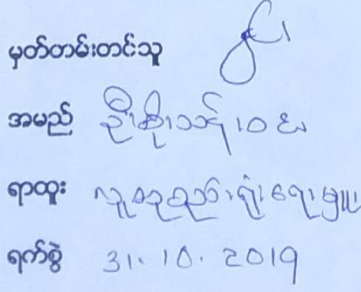 မှတ်တမ်းတင်သူ
အမည် ဦးစိုးသန်း
ရာထူး လူထုစည်းရုံးရေးမှူး
ရက်စွဲ 31.10.2019